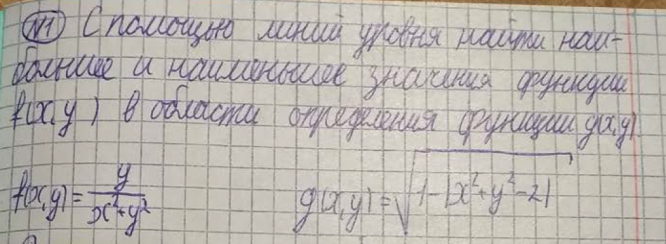 N1 С помощью линий уровня найти наи-
большее и наименьшее значения функции
f(x,y) в области определения функции g(x,y)
f(x,y) = y/(x²+y²)   g(x,y) = √(1-|x²+y²-2|)